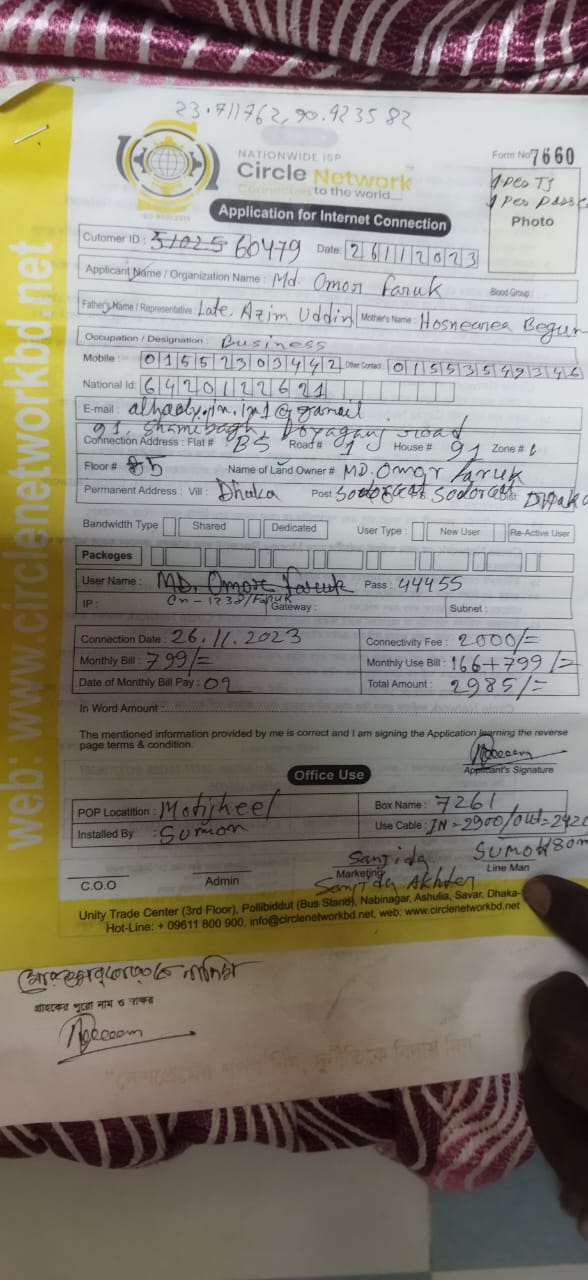 23.711762, 90.423582
NATIONWIDE ISP
Circle Network
Connections to the world....
ISO 9001:2015
Form No 7660
Application for Internet Connection
Photo
Cutomer ID : 51025 60479 Date: 26112023
Applicant Name / Organization Name : Md. Omor Faruk Blood Group :
Father's Name / Representative : Late. Azim Uddin Mother's Name : Hosneanea Begum
Occupation / Designation : Business
Mobile : 01552303442 Other Contact : 01553549346
National Id: 6420122621
E-mail :
91, Shamibagh, Doyagonj road
Connection Address : Flat # B5 Road # 1 House # 91 Zone #
Floor # 5 Name of Land Owner # MD. Omor Faruk
Permanent Address : Vill : Dhaka Post Sodorgat Dist Dhaka
Bandwidth Type Shared Dedicated User Type : New User Re-Active User
Packeges
User Name : MD. Omor Faruk Pass : 44455
cn-1238/Faruk
IP : Gateway : Subnet :
Connection Date : 26.11.2023 Connectivity Fee : 2000/=
Monthly Bill : 799/= Monthly Use Bill : 166+799/=
Date of Monthly Bill Pay : 02 Total Amount : 2985/=
In Word Amount :
The mentioned information provided by me is correct and I am signing the Application learning the reverse
page terms & condition.
Applicant's Signature
Office Use
POP Locatition : Motijheel Box Name : 7261
Installed By : Sumon Use Cable : IN-2900/Out=242
Sanjida
C.O.O Admin Marketing Line Man
Sanjida Akhter
Unity Trade Center (3rd Floor), Pollibiddut (Bus Stand), Nabinagar, Ashulia, Savar, Dhaka-
Hot-Line: + 09611 800 900, info@circlenetworkbd.net, web: www.circlenetworkbd.net
web: www.circlenetworkbd.net
গ্রাহকের পুরো নাম ও স্বাক্ষর
"দেশপ্রেমের শপথ নিন, দুর্নীতিকে বিদায় দিন"